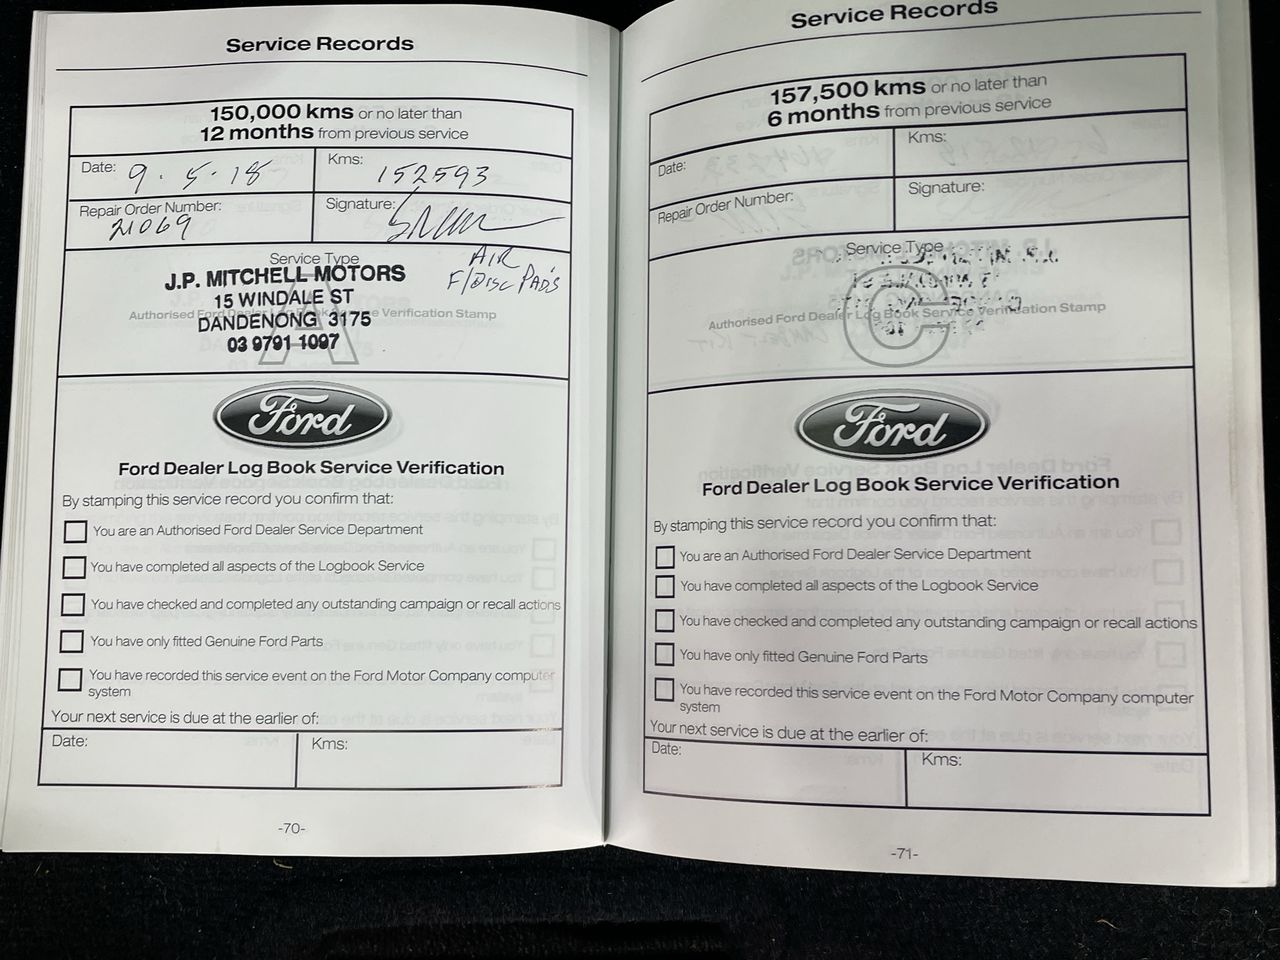 Service Records
150,000 kms or no later than
12 months from previous service
Date: 9.5.18
Kms: 152593
Repair Order Number: 21069
Signature:
Service Type
A
AIR
F/DISC PAD'S
J.P. MITCHELL MOTORS
15 WINDALE ST
Authorised Ford Dealer Log Book Service Verification Stamp
DANDENONG 3175
03 9791 1097
Ford
Ford Dealer Log Book Service Verification
By stamping this service record you confirm that:
You are an Authorised Ford Dealer Service Department
You have completed all aspects of the Logbook Service
You have checked and completed any outstanding campaign or recall actions
You have only fitted Genuine Ford Parts
You have recorded this service event on the Ford Motor Company computer
system
Your next service is due at the earlier of:
Date:
Kms:
-70-
Service Records
157,500 kms or no later than
6 months from previous service
Date:
Kms:
Repair Order Number:
Signature:
Service Type
C
Authorised Ford Dealer Log Book Service Verification Stamp
Ford
Ford Dealer Log Book Service Verification
By stamping this service record you confirm that:
You are an Authorised Ford Dealer Service Department
You have completed all aspects of the Logbook Service
You have checked and completed any outstanding campaign or recall actions
You have only fitted Genuine Ford Parts
You have recorded this service event on the Ford Motor Company computer
system
Your next service is due at the earlier of:
Date:
Kms:
-71-